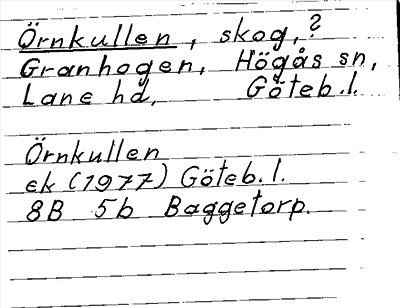 Örnkullen, skog,?
Granhogen, Högås sn,
Lane hd, Göteb.l.
Örnkullen
ek (1977) Göteb.l.
8B 5b Baggetorp.